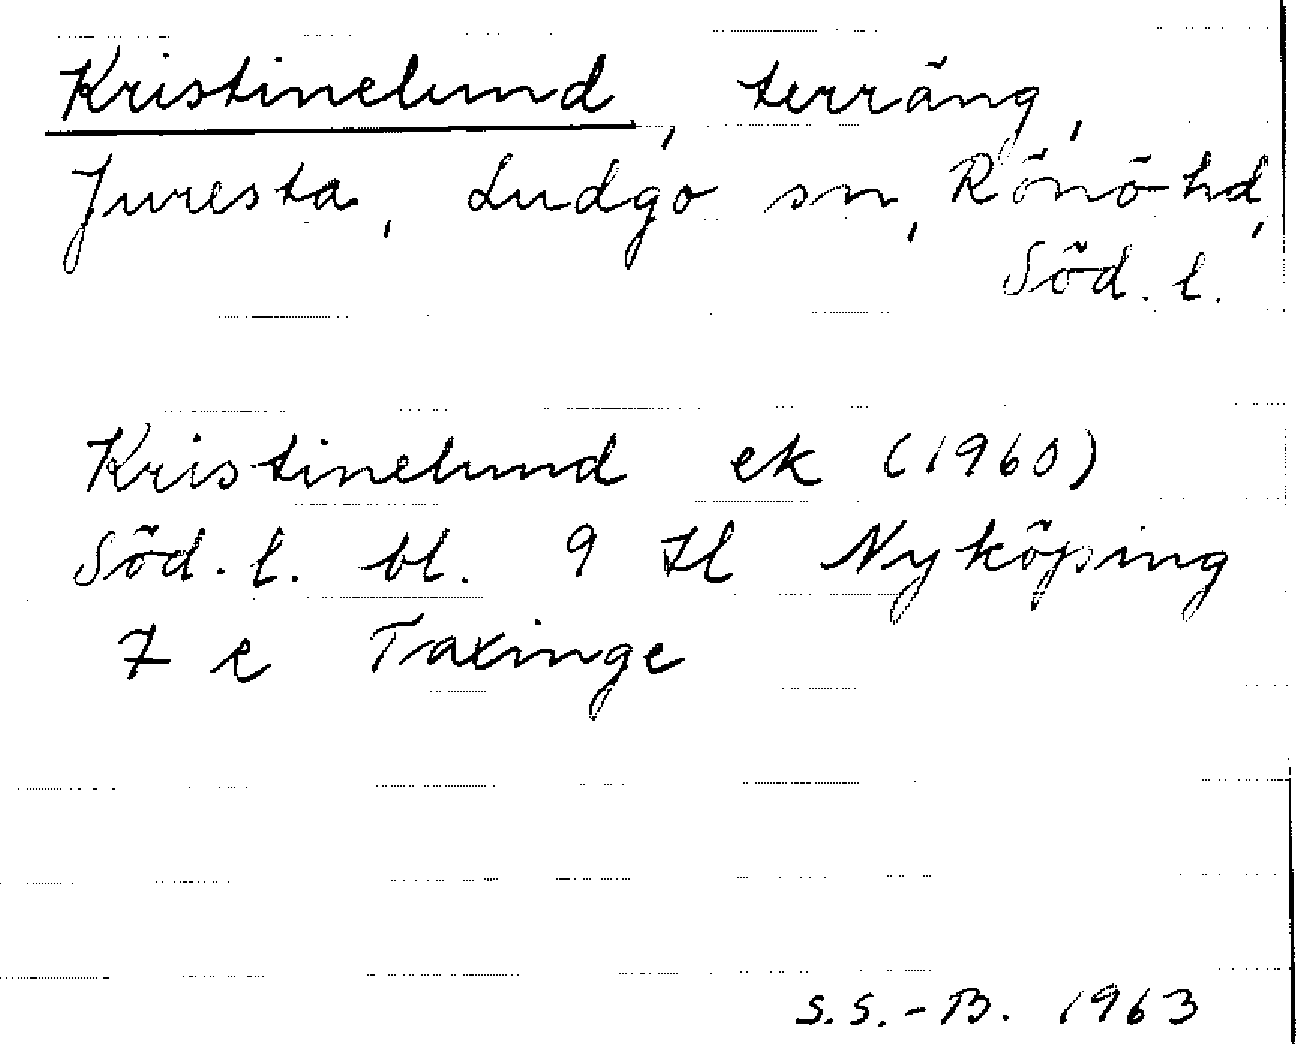 Kristinelund, terräng,
Juresta, Ludgo sn, Rönö hd,
Söd. l.
Kristinelund ek (1960)
Söd. l. bl. 9 H Nyköping
7 e Taxinge
S.S.-B. 1963